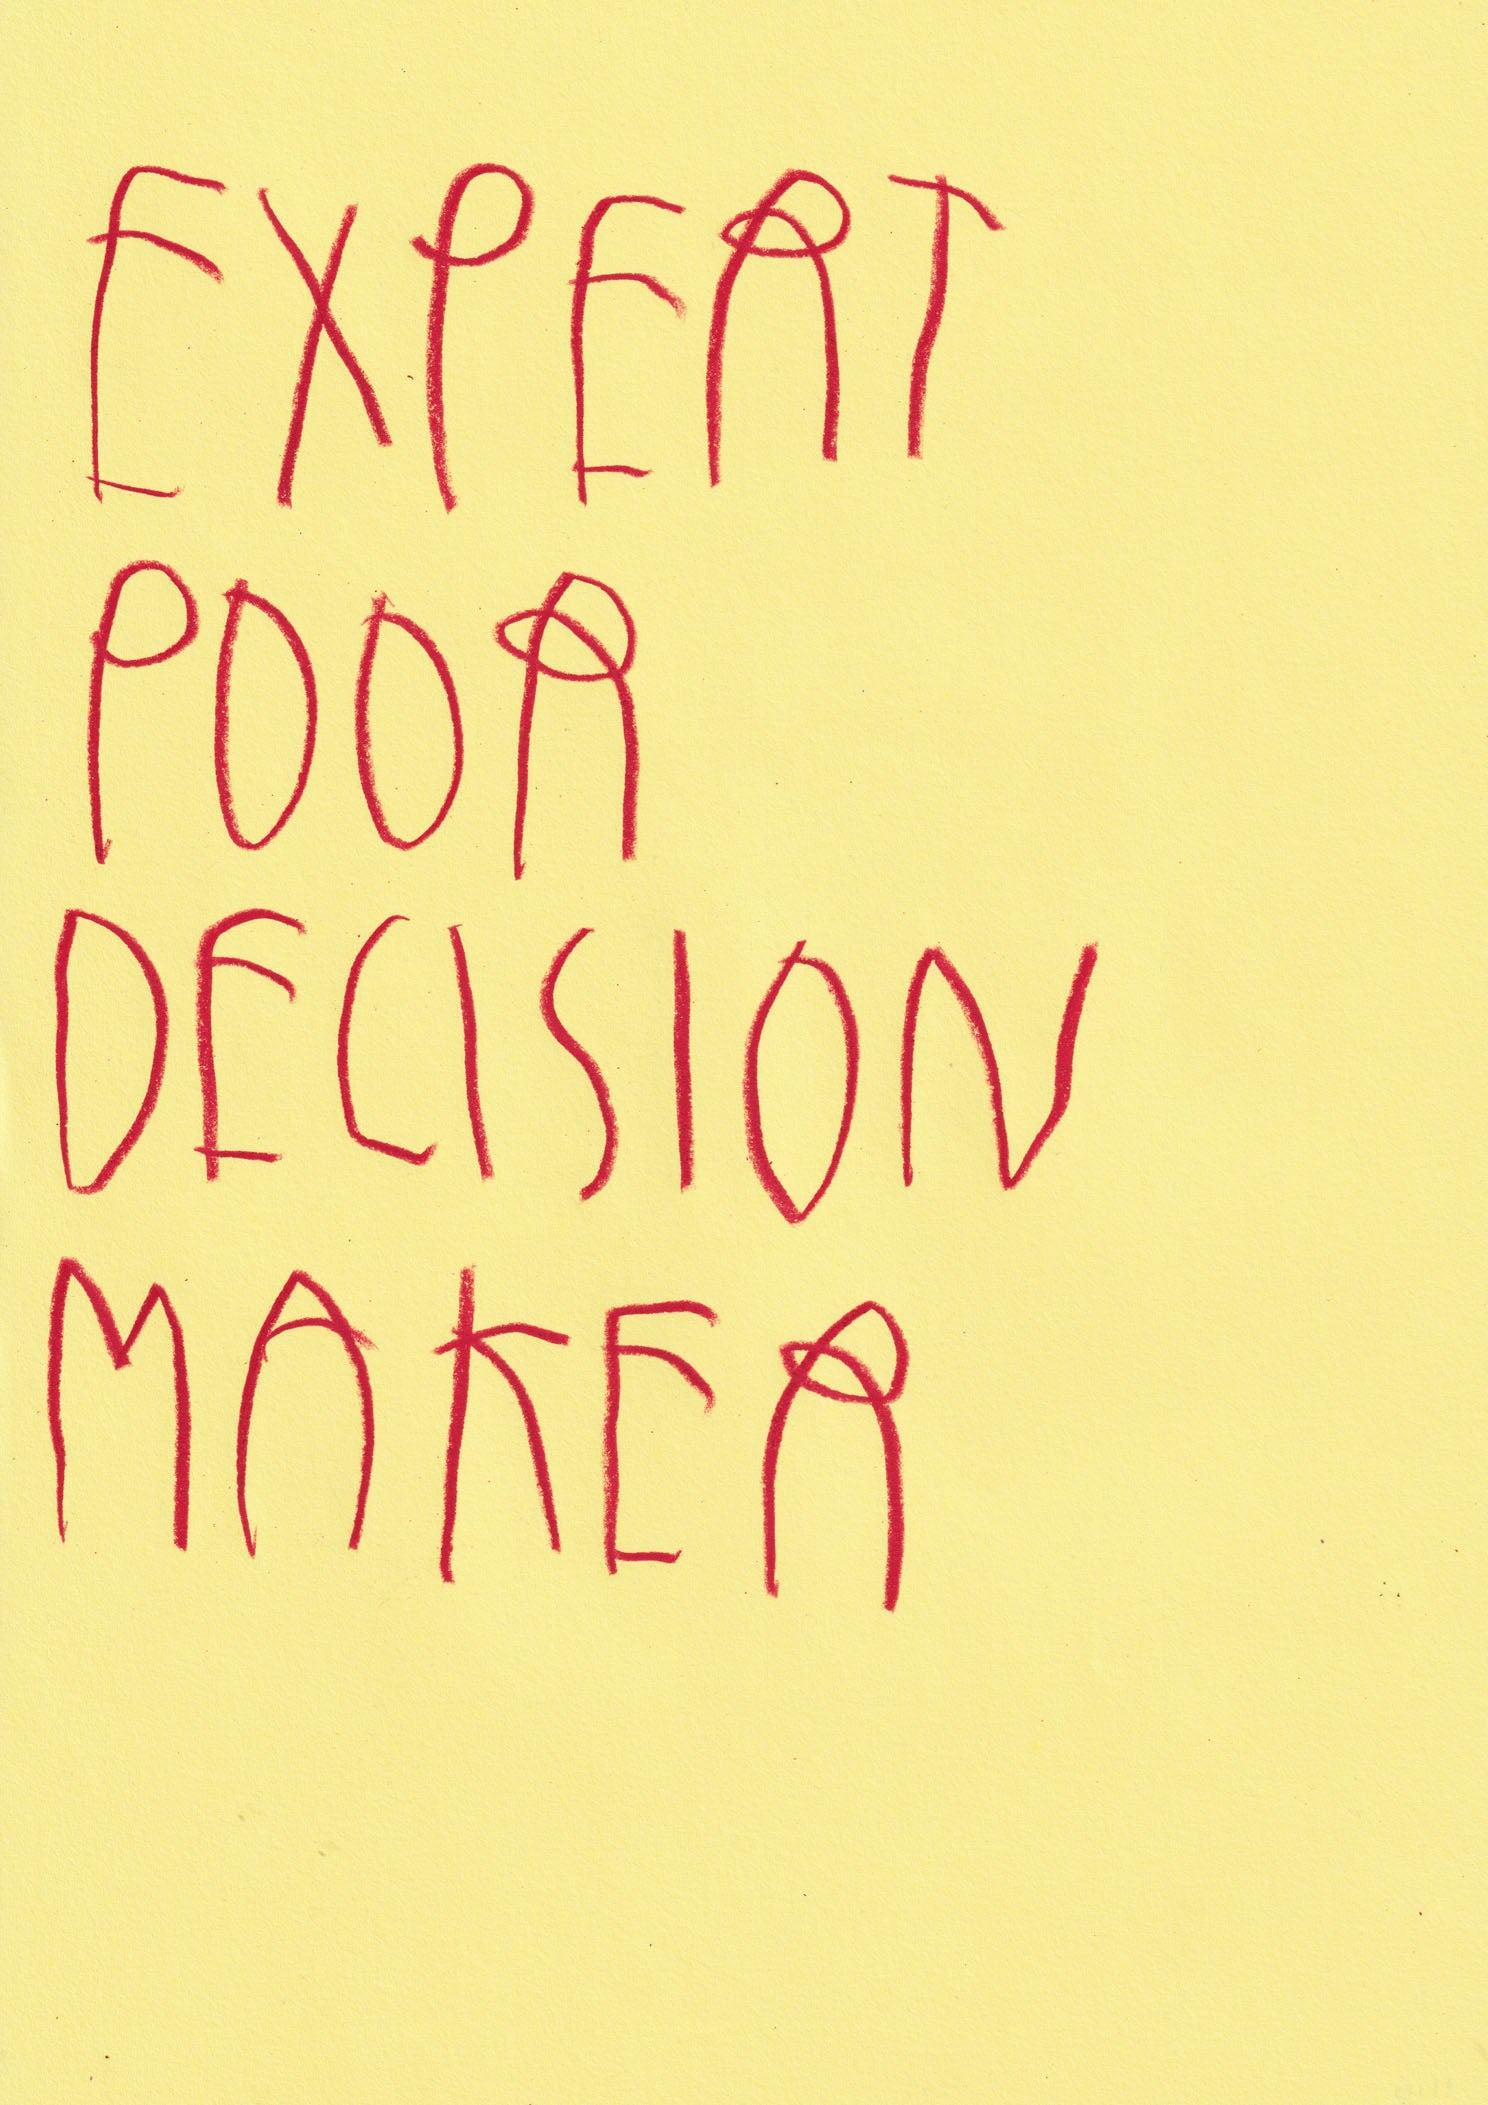 EXPERT
POOR
DECISION
MAKER